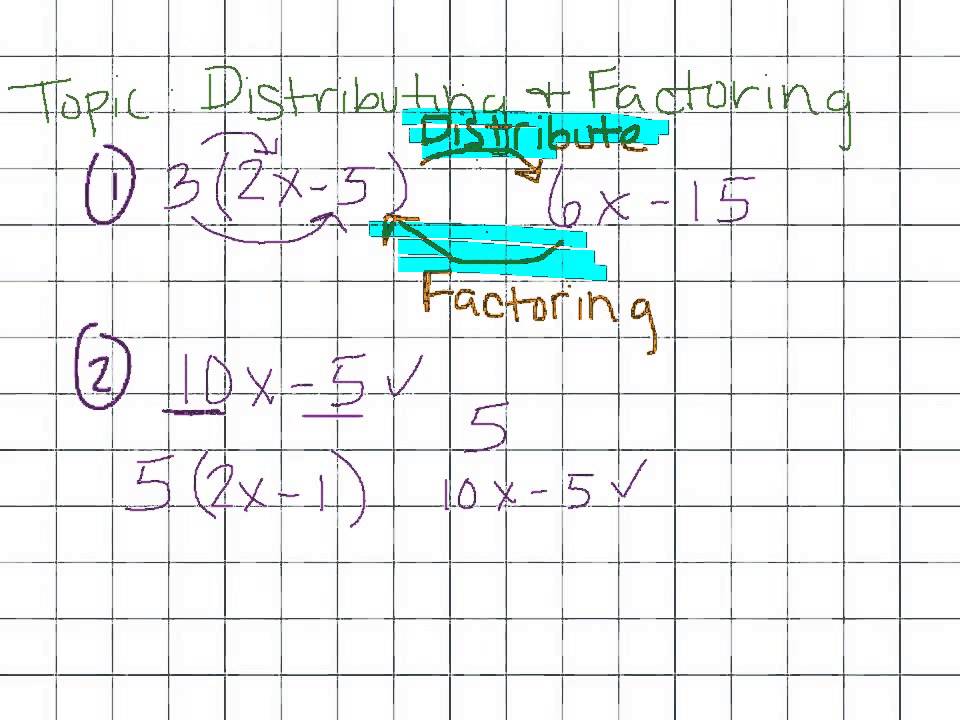 Topic: Distributing + Factoring
Distribute
① 3(2x-5) 6x-15
Factoring
② 10x-5✓
5
5(2x-1) 10x-5✓